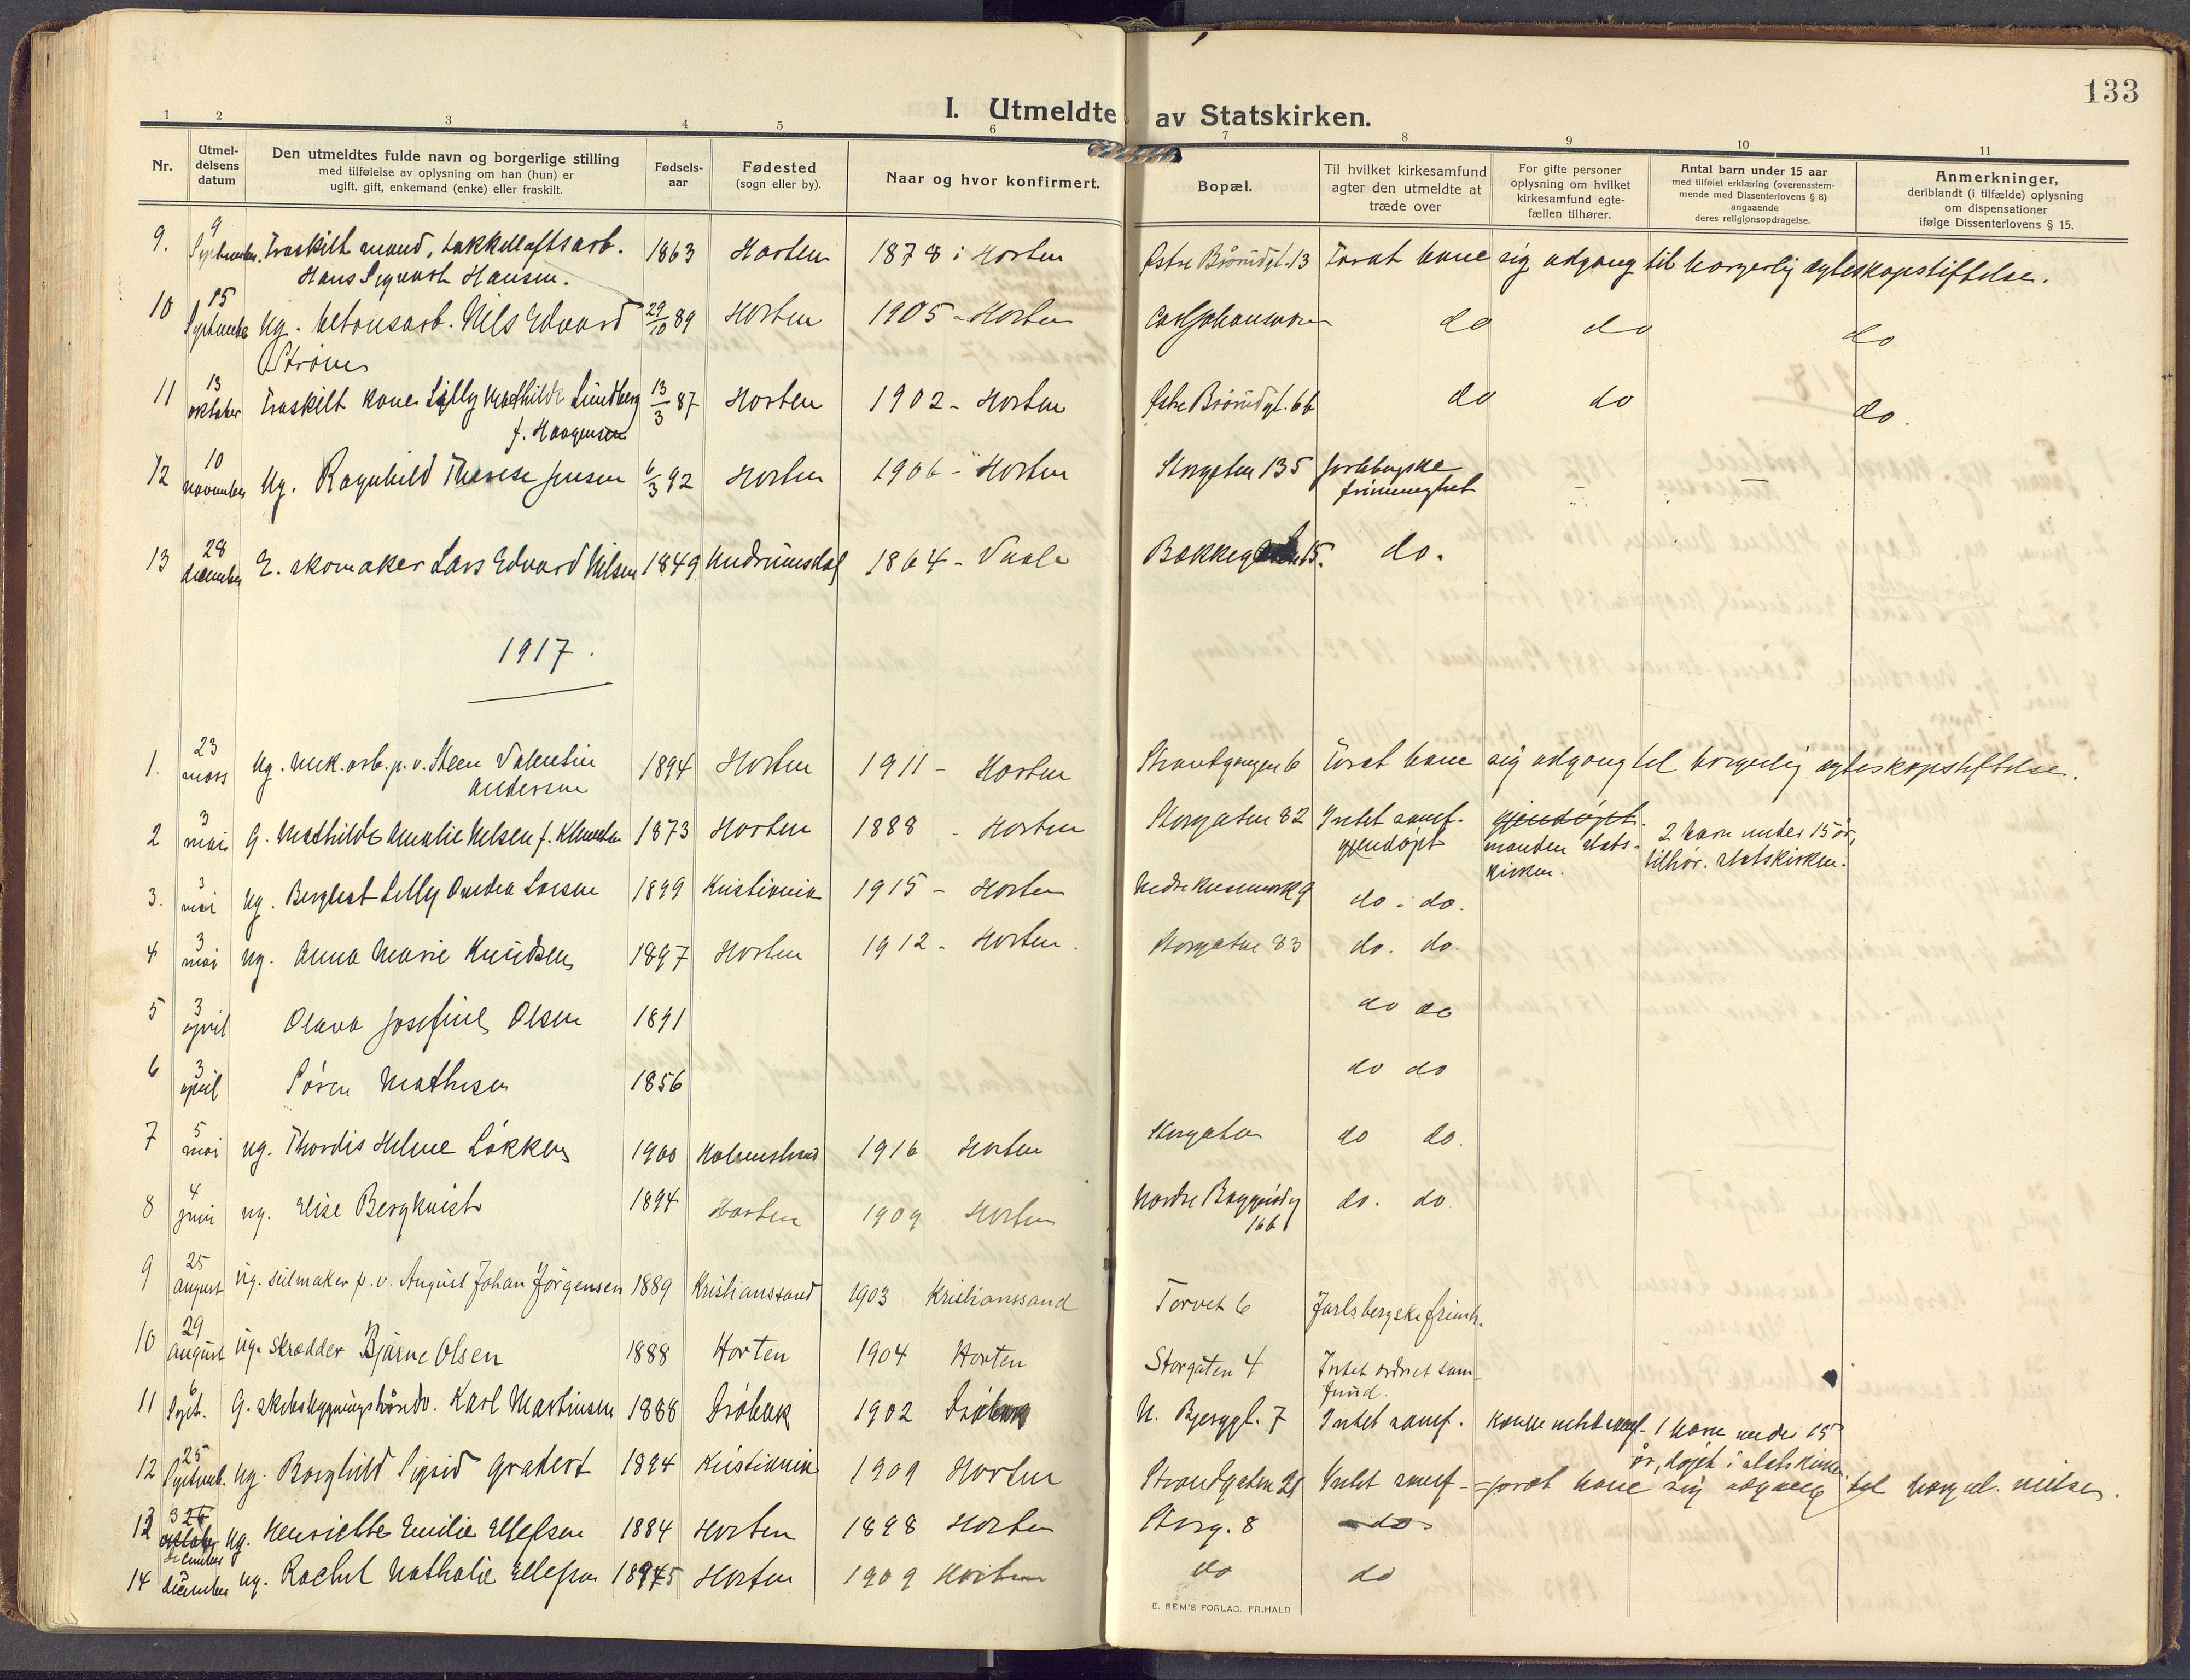 133
I. Utmeldte av Statskirken.
1 2 3 4 5 6 7 8 9 10 11
Nr.
Utmel-
delsens
datum
Den utmeldtes fulde navn og borgerlige stilling
med tilføielse av oplysning om han (hun) er
ugift, gift, enkemand (enke) eller fraskilt.
Fødsels-
aar
Fødested
(sogn eller by).
Naar og hvor konfirmert.
Bopæl.
Til hvilket kirkesamfund
agter den utmeldte at
træde over
For gifte personer
oplysning om hvilket
kirkesamfund egte-
fællen tilhører.
Antal barn under 15 aar
med tilføiet erklæring (overensstem-
mende med Dissenterlovens § 8)
angaaende
deres religionsopdragelse.
Anmerkninger,
deriblandt (i tilfælde) oplysning
om dispensationer
ifølge Dissenterlovens § 15.
9. 9 September. Fraskilt mand, takkelloftsarb. 1863 Horten 1878 i Horten Østre Brårudgt. 13 Forat have sig adgang til borgerlig ægteskapsstiftelse.
Hans Sigvart Hansen.
10 15 September Ug. betonsarb. Nils Edvard 29/10 89 Horten 1905 - Horten do do do
Strøm
11 13 oktober Fraskilt kone Lilly Mathilde Lundberg 13/3 87 Horten 1902 - Horten Østre Brårudgt. 66 do do do.
f. Haagensen
12 10 november Ug. Ragnhild Therese Jensen 6/3 92 Horten 1906 - Horten Storgaten 135 Jarlsbergske
frimenighet - -
13 28 december E. skomaker Lars Edvard Nilsen 1849 Undrumsdal 1864 - Vaale Bakkegaten 15. do.
1917.
1. 23 mars Ug. mek. arb. p. v. Steen Valentin 1894 Horten 1911 - Horten Strandgangen 6 Forat have sig adgang til borgerlig ægteskapsstiftelse.
Andersen
2 3 mai G. Mathilde Amalie Nilsen f. Klemetsen 1873 Horten 1888 - Horten Storgaten 82 Intet samf. gjendøpt. 2 barn under 15 år,
gjendøpt manden stats- tilhør. statskirken.
kirken.
3. 3 mai Ug. Bergliot Lilly Andrea Larsen 1899 Kristiania 1915 - Horten do - do.
4 3 mai Ug. Anna Marie Knudsen 1897 Horten 1912 - Horten. Storgaten 83 do. do.
5 3 april Olava Josefine Olsen 1891 do do
6 3 april Søren Mathisen 1856 do do
7 5 mai Ug. Thordis Helene Løkken 1900 Holmestrand 1916 Horten Storgaten do do.
8 4 juni Ug. Elise Bergkvist 1894 Horten 1909 Horten Nordre do. do.
16b
9 25 august Ug. seilmaker p. v. August Johan Jørgensen 1889 Kristianssand 1903 Kristianssand Torvet 6 Jarlsbergske frimh.
10 29 august Ug. skrædder Bjarne Olsen 1888 Horten 1904 Horten Storgaten 4 Intet ordnet sam-
fund.
11 6 Sept. G. skibsbygningshåndv. Karl Martinsen 1888 Drøbak 1902 Drøbak N. Bjerggt. 7 Intet samf. konen intet samf. 1 barn under 15
år, døpt i statskirken.
12 25 Septemb. Ug. Borghild Sigrid Gradert 1894 Kristiania 1909 Horten Strandgaten 21 Intet samf - forat have sig adgang til borgerl. vielse.
13 3 26 oktober december Ug. Henriette Emilie Ellefsen 1884 Horten 1898 Horten Storg. 8 do
14 3 december Ug. Rachel Nathalie Ellefsen 1895 Horten 1909 Horten do do
E. SEM'S FORLAG. FR.HALD